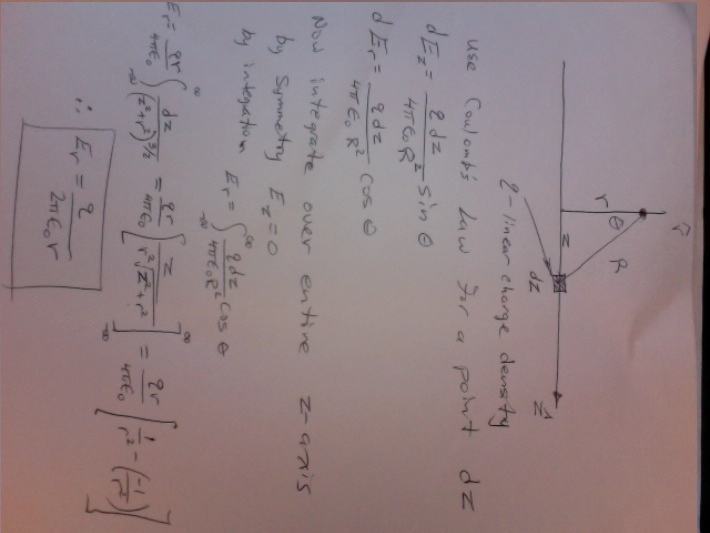 r̂
r θ R
z
dz
ẑ
q - linear charge density
use Coulomb's Law for a point dz
dE_z = q dz / 4πε₀R² sin θ
dE_r = q dz / 4πε₀R² cos θ
Now integrate over entire z-axis
by symmetry E_z = 0
by integration E_r = ∫_{-∞}^{∞} q dz / 4πε₀R² cos θ
E_r = qr / 4πε₀ ∫_{-∞}^{∞} dz / (z²+r²)^{3/2} = qr / 4πε₀ [ z / r²√(z²+r²) ]_{-∞}^{∞} = qr / 4πε₀ [ 1/r² - (-1/r²) ]
∴ E_r = q / 2πε₀r